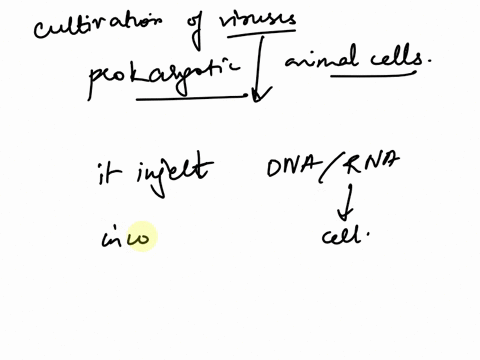 cultivation of viruses
prokaryotic animal cells.
it inject DNA/RNA
inco cell.